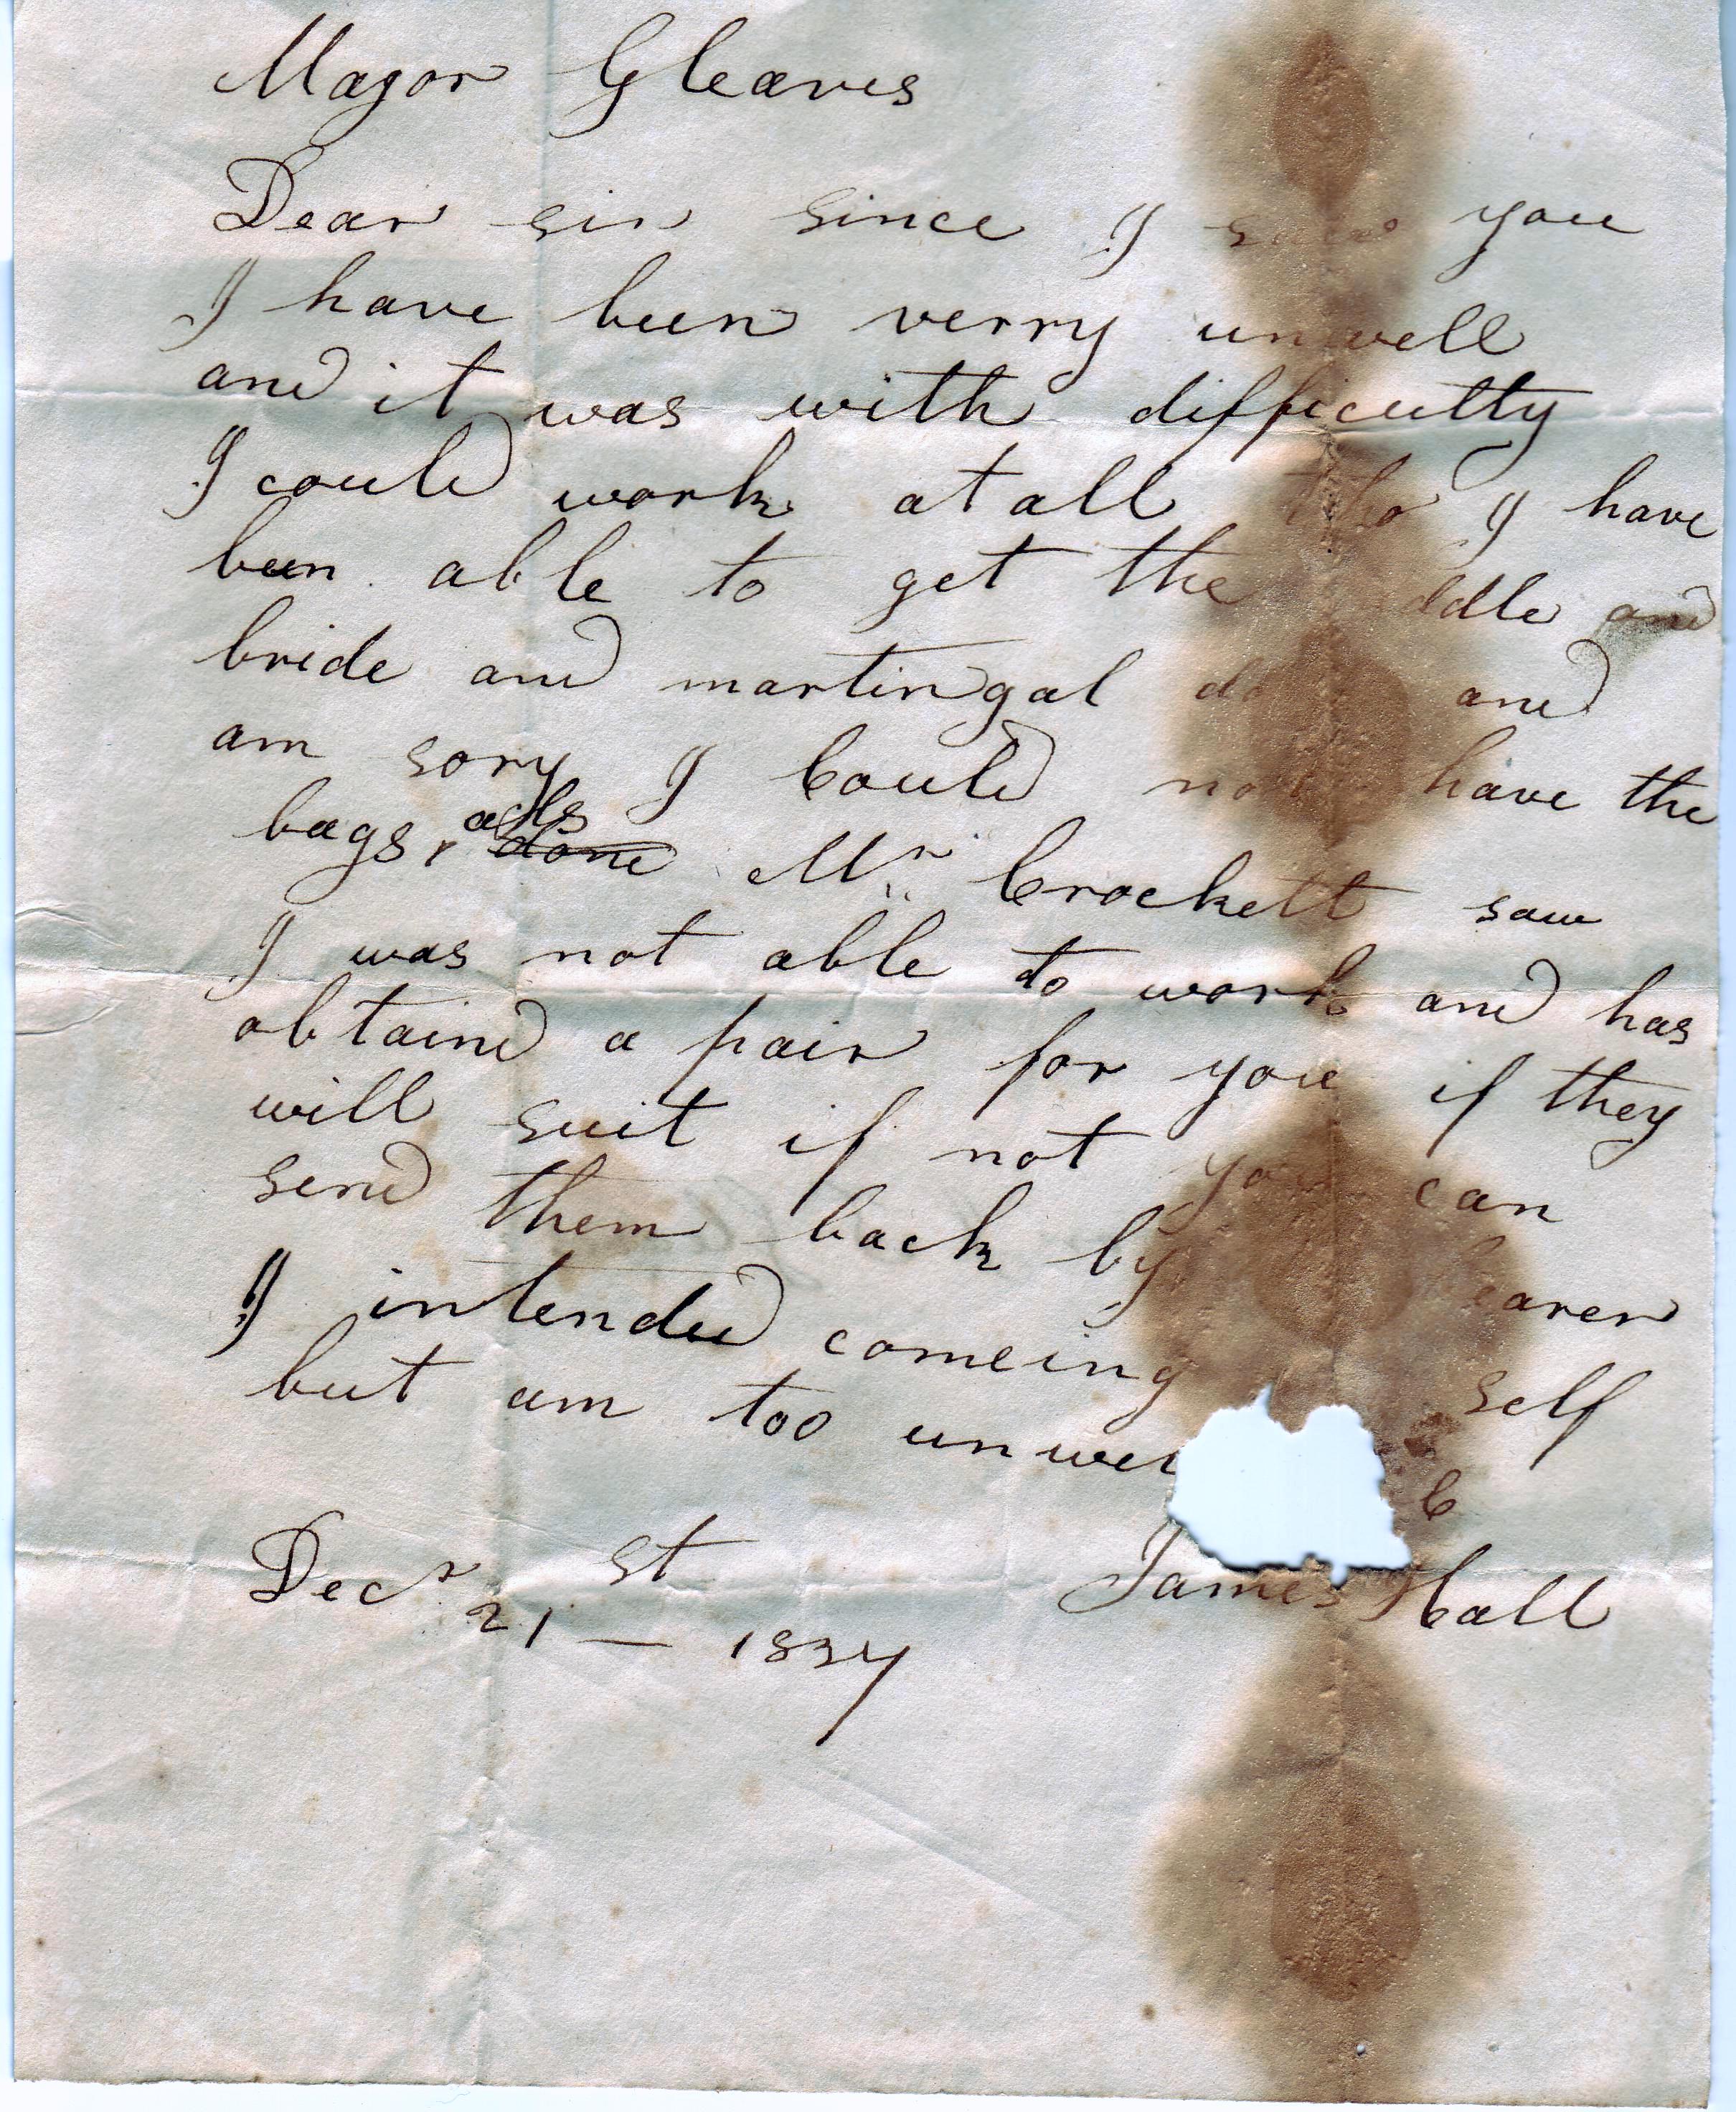 Major Gleaves
Dear sir since I saw you
I have been verry unwell
and it was with difficulty
I could work at all tho I have
been able to get the ddle and
bride and martingal and
am sory I Could not have the
bags, done Mr. Crockett saw
I was not able to work and has
obtaind a pair for you if they
will suit if not you can
send them back by bearer
I intended comeing self
but am too unwel
James Hall
Decr 21st — 1837